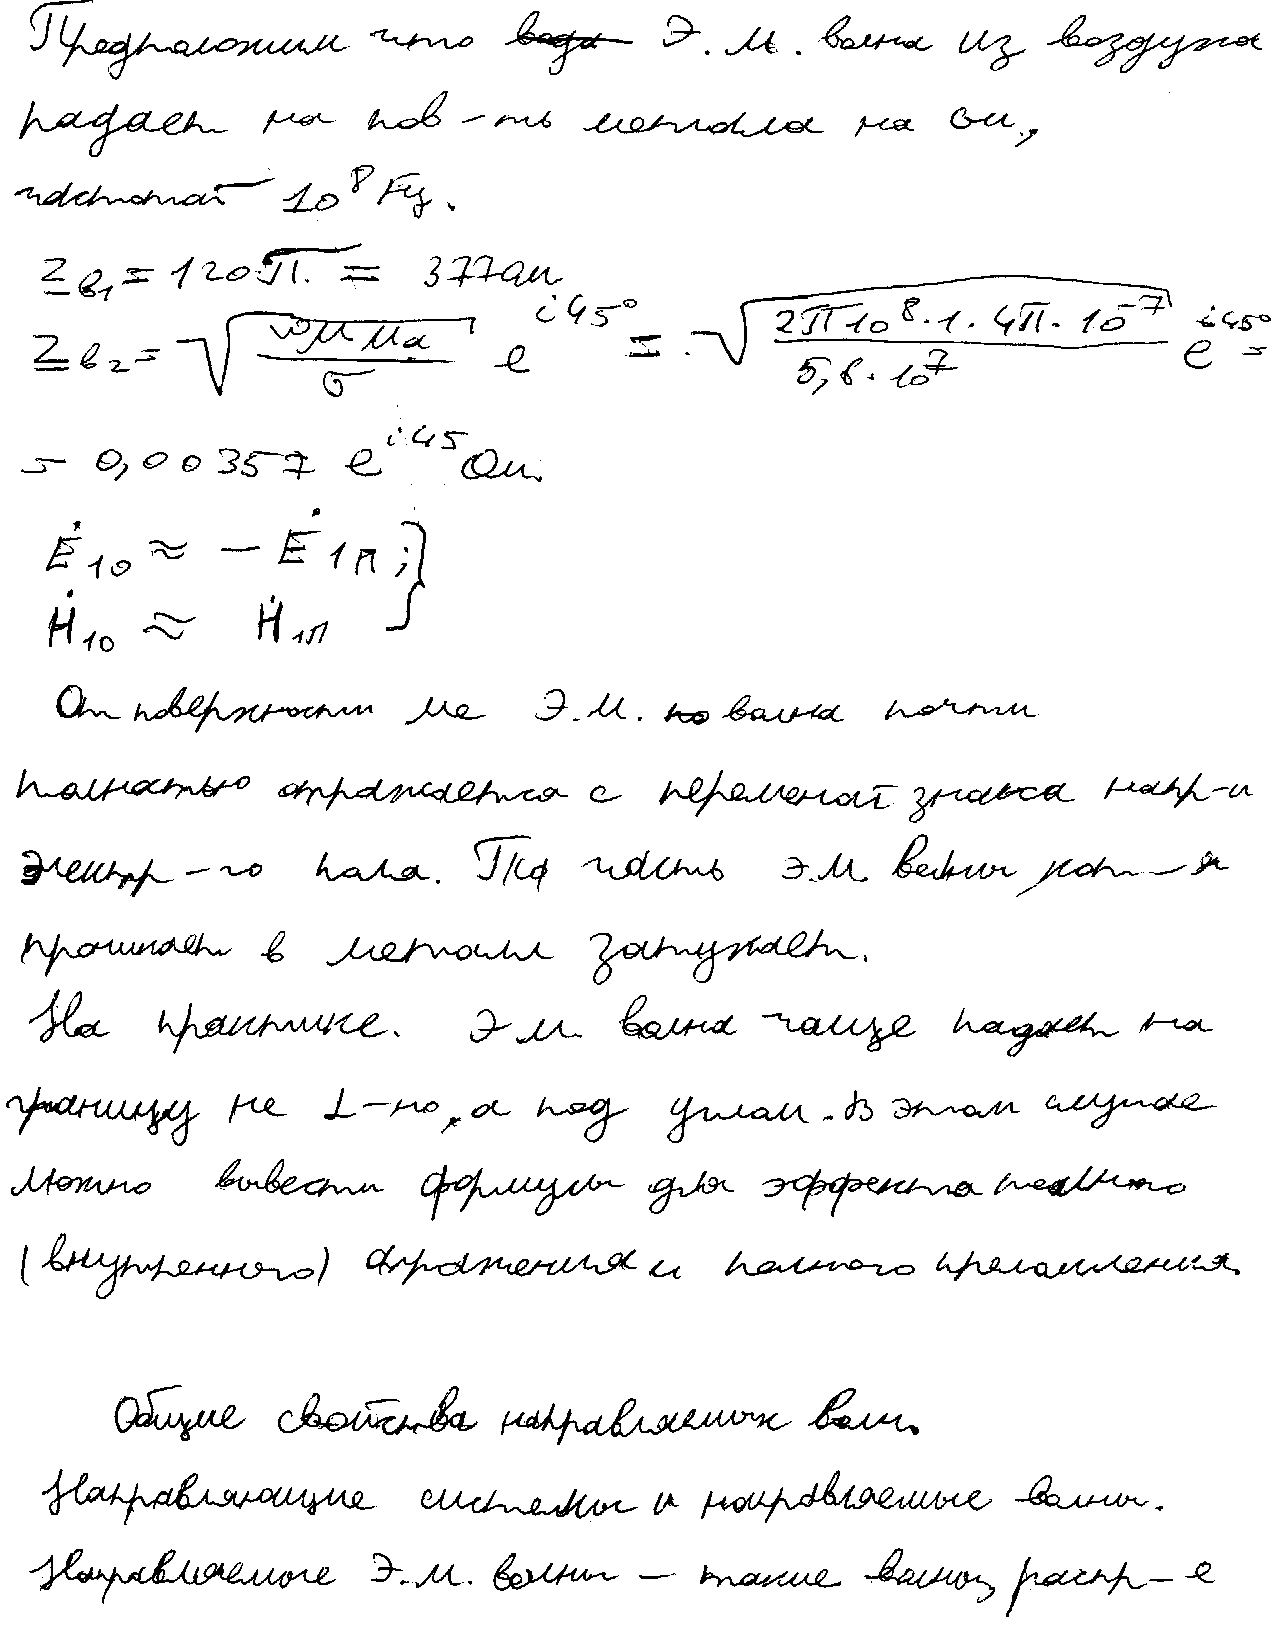 Предположим что вода Э.М. волна из воздуха
падает на пов-ть металла на
частотой 10^8 Гц.
Z_в1 = 120П. = 377 Ом
Z_в2 = √(ωμμa/σ) e^i45° = √(2П10^8·1·4П·10^-7/5,8·10^7) e^i45° =
= 0,00357 e^i45 Ом.
Ė10 ≈ - Ė1П;}
Ḣ10 ≈ Ḣ1П
От поверхности Ме Э.М. волна почти
полностью отражается с переменой знака напр-и
электр-го поля. Та часть Э.М. волны кот-я
проникает в металл затухает.
На практике. Э М. волна чаще падает на
границу не ⊥-но, а под углом. В этом случае
можно вывести формулы для эффекта полного
(внутренного) отражения и полного преломления.
Общие свойства направляемых волн.
Направляющие системы и направляемые волны.
Направляемые Э.М. волны – такие волны, распр-е